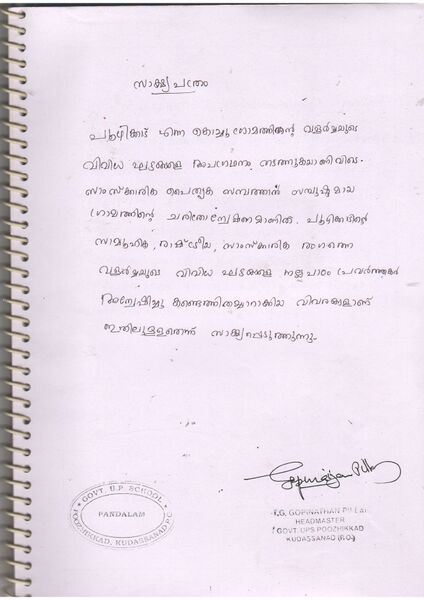 സാക്ഷ്യപത്രം
പൂഴിക്കാട് എന്ന കൊച്ചു ഗ്രാമത്തിന്റെ വളർച്ചയുടെ
വിവിധ ഘട്ടങ്ങളുടെ അപഗ്രഥനം നടത്തുകയാണിവിടെ.
സാംസ്കാരിക പൈതൃക സമ്പത്താൽ സമ്പുഷ്ടമായ
ഗ്രാമത്തിന്റെ ചരിത്രാന്വേഷണമാണിത്. പൂഴിക്കാടിന്റെ
സാമൂഹിക, രാഷ്ട്രീയ, സാംസ്കാരിക രംഗത്തെ
വളർച്ചയുടെ വിവിധ ഘട്ടങ്ങൾ നല്ലപാഠം പ്രവർത്തകർ
അന്വേഷിച്ചു കണ്ടെത്തി തയ്യാറാക്കിയ വിവരങ്ങളാണ്
ഇതിലുള്ളതെന്ന് സാക്ഷ്യപ്പെടുത്തുന്നു.
Gopinathan Pillai
GOVT. U.P. SCHOOL
PANDALAM
POOZHIKKAD, KUDASSANAD P.O.
T.G. GOPINATHAN PILLAI
HEADMASTER
GOVT. UPS POOZHIKKAD
KUDASSANAD (P.O.)
1